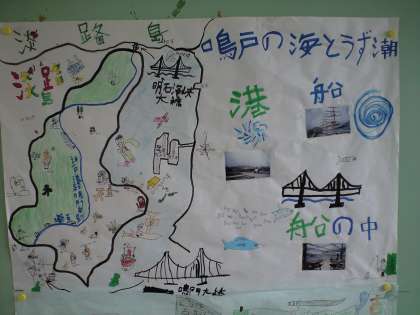 淡路島
鳴戸の海とうず潮
淡路島
明石海峡
大橋
港
船
船の中
鳴門大橋